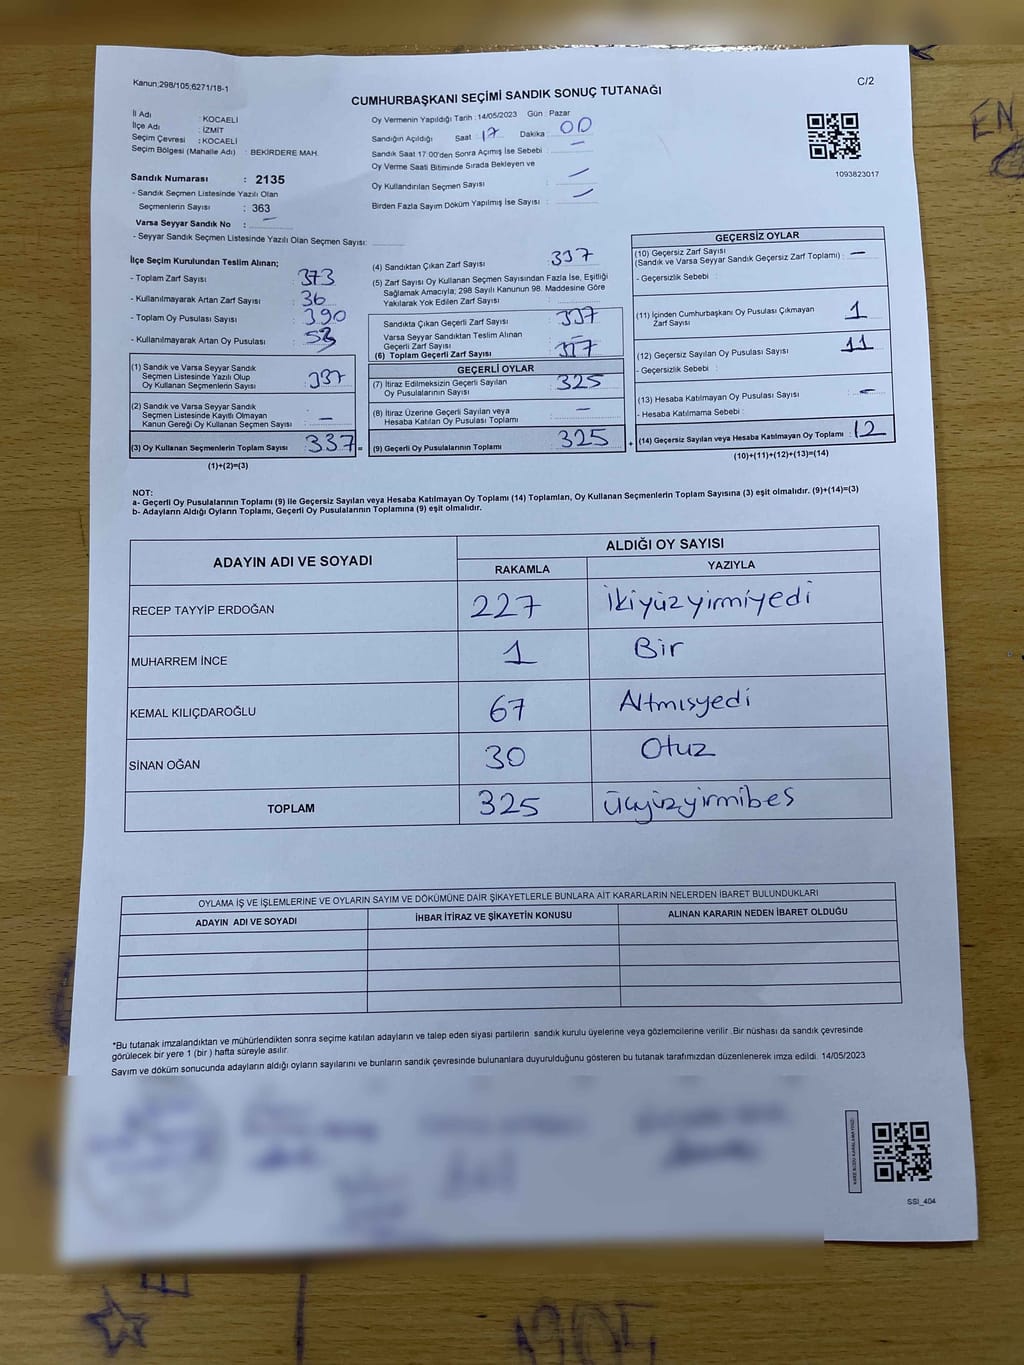 Kanun;298/105;6271/18-1
C/2
CUMHURBAŞKANI SEÇİMİ SANDIK SONUÇ TUTANAĞI
İl Adı : KOCAELİ
İlçe Adı : İZMİT
Seçim Çevresi : KOCAELİ
Seçim Bölgesi (Mahalle Adı) : BEKİRDERE MAH.
Sandık Numarası : 2135
- Sandık Seçmen Listesinde Yazılı Olan
Seçmenlerin Sayısı : 363
Varsa Seyyar Sandık No : –
- Seyyar Sandık Seçmen Listesinde Yazılı Olan Seçmen Sayısı:
Oy Vermenin Yapıldığı Tarih : 14/05/2023 Gün : Pazar
Sandığın Açıldığı Saat 17 Dakika : 00
Sandık Saat 17:00'den Sonra Açımış İse Sebebi : –
Oy Verme Saati Bitiminde Sırada Bekleyen ve
Oy Kullandırılan Seçmen Sayısı : –
Birden Fazla Sayım Döküm Yapılmış İse Sayısı : –
1093823017
İlçe Seçim Kurulundan Teslim Alınan;
- Toplam Zarf Sayısı : 373
- Kullanılmayarak Artan Zarf Sayısı : 36
- Toplam Oy Pusulası Sayısı : 390
- Kullanılmayarak Artan Oy Pusulası : 53
(1) Sandık ve Varsa Seyyar Sandık
Seçmen Listesinde Yazılı Olup
Oy Kullanan Seçmenlerin Sayısı : 337
(2) Sandık ve Varsa Seyyar Sandık
Seçmen Listesinde Kayıtlı Olmayan
Kanun Gereği Oy Kullanan Seçmen Sayısı : –
(3) Oy Kullanan Seçmenlerin Toplam Sayısı : 337 =
(1)+(2)=(3)
(4) Sandıktan Çıkan Zarf Sayısı : 337
(5) Zarf Sayısı Oy Kullanan Seçmen Sayısından Fazla İse, Eşitliği
Sağlamak Amacıyla; 298 Sayılı Kanunun 98. Maddesine Göre
Yakılarak Yok Edilen Zarf Sayısı :
Sandıkta Çıkan Geçerli Zarf Sayısı : 337
Varsa Seyyar Sandıktan Teslim Alınan
Geçerli Zarf Sayısı : –
(6) Toplam Geçerli Zarf Sayısı : 337
GEÇERLİ OYLAR
(7) İtiraz Edilmeksizin Geçerli Sayılan
Oy Pusulalarının Sayısı : 325
(8) İtiraz Üzerine Geçerli Sayılan veya
Hesaba Katılan Oy Pusulası Toplamı : –
(9) Geçerli Oy Pusulalarının Toplamı : 325 +
GEÇERSİZ OYLAR
(10) Geçersiz Zarf Sayısı
(Sandık ve Varsa Seyyar Sandık Geçersiz Zarf Toplamı) : –
- Geçersizlik Sebebi :
(11) İçinden Cumhurbaşkanı Oy Pusulası Çıkmayan
Zarf Sayısı : 1
(12) Geçersiz Sayılan Oy Pusulası Sayısı : 11
- Geçersizlik Sebebi :
(13) Hesaba Katılmayan Oy Pusulası Sayısı : –
- Hesaba Katılmama Sebebi :
(14) Geçersiz Sayılan veya Hesaba Katılmayan Oy Toplamı : 12
(10)+(11)+(12)+(13)=(14)
NOT:
a- Geçerli Oy Pusulalarının Toplamı (9) ile Geçersiz Sayılan veya Hesaba Katılmayan Oy Toplamı (14) Toplamları, Oy Kullanan Seçmenlerin Toplam Sayısına (3) eşit olmalıdır. (9)+(14)=(3)
b- Adayların Aldığı Oyların Toplamı, Geçerli Oy Pusulalarının Toplamına (9) eşit olmalıdır.
ADAYIN ADI VE SOYADI ALDIĞI OY SAYISI
RAKAMLA YAZIYLA
RECEP TAYYİP ERDOĞAN 227 İkiyüzyirmiyedi
MUHARREM İNCE 1 Bir
KEMAL KILIÇDAROĞLU 67 Altmısyedi
SİNAN OĞAN 30 Otuz
TOPLAM 325 Üçyüzyirmibes
OYLAMA İŞ VE İŞLEMLERİNE VE OYLARIN SAYIM VE DÖKÜMÜNE DAİR ŞİKAYETLERLE BUNLARA AİT KARARLARIN NELERDEN İBARET BULUNDUKLARI
ADAYIN ADI VE SOYADI İHBAR İTİRAZ VE ŞİKAYETİN KONUSU ALINAN KARARIN NEDEN İBARET OLDUĞU
*Bu tutanak imzalandıktan ve mühürlendikten sonra seçime katılan adayların ve talep eden siyasi partilerin sandık kurulu üyelerine veya gözlemcilerine verilir .Bir nüshası da sandık çevresinde
görülecek bir yere 1 (bir ) hafta süreyle asılır.
Sayım ve döküm sonucunda adayların aldığı oyların sayılarını ve bunların sandık çevresinde bulunanlara duyurulduğunu gösteren bu tutanak tarafımızdan düzenlenerek imza edildi. 14/05/2023
SSI_404
EN
1905